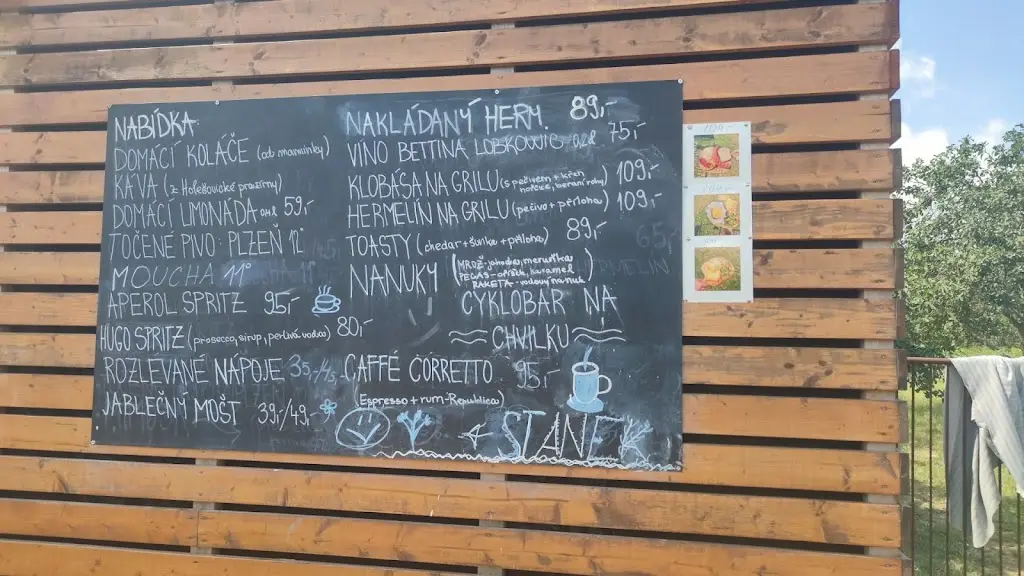 NABÍDKA
DOMÁCÍ KOLÁČE (od maminky)
KÁVA (z Holešovské pražírny)
DOMÁCÍ LIMONÁDA 59,-
TOČENÉ PIVO: PLZEŇ 12°
MOUCHA 11°
APEROL SPRITZ 95,-
HUGO SPRITZ (prosecco, sirup, perlivá voda) 80,-
ROZLÉVANÉ NÁPOJE 35,-/45,-
JABLEČNÝ MOŠT 39,-/49,-
NAKLÁDANÝ HERM. 89,-
VÍNO BETTINA LOBKOWIC 75,-
KLOBÁSA NA GRILU (s pečivem + křen, hořčice, beraní rohy) 109,-
HERMELÍN NA GRILU (pečivo + příloha) 109,-
TOASTY (chedar + šunka + příloha) 89,-
NANUKY (MRDŽ-jahodka, meruňka
PEGAS-oříšek, karamel
RAKETA-vodový nanuk)
CYKLOBAR NA
CHVILKU
CAFFÉ CORRETTO 95,-
(Espresso + rum-Republica)
STÁNEK